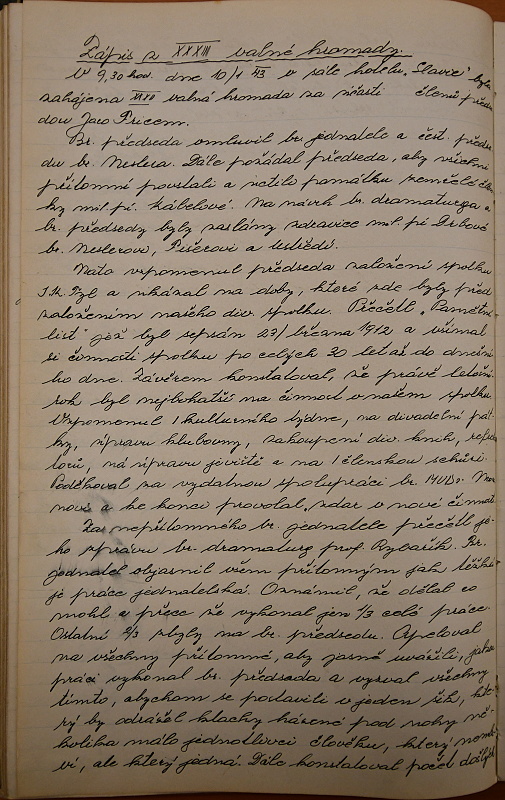 Zápis z XXXIII valné hromady.
V 9,30 hod. dne 10/1 43 v sále hotelu „Slavie" byla
zahájena valná hromada za účasti členů před
dou Jaro Pricem.
Br. předseda omluvil br. jednatele a čest. předse
du br. Neslera. Dále požádal předseda, aby všichni
přítomní povstali a uctili památku zemřelé
mil. pí. Kábelové. Na návrh br. dramaturga a
br. předsedy byly zaslány zdravice mil. pí Drbové
br. Neslerovi, Pišerovi a Ústředí.
Nato vzpomenul předseda založení spolku
J. K. Tyl a ukázal na doby, které zde byly před
založením našeho div. spolku. Přečetl „Pamětní
list" jež byl sepsán 23/ března 1912 a všímal
si činnosti spolku po celých 30 let až do dnešní
ho dne. Závěrem konstatoval, že právě letošní
rok byl nejbohatší na činnost v našem spolku.
Vzpomenul 1 kulturního týdne, na divadelní pát
ky, úpravu klubovny, zakoupení div. knih, reflek
torů, na úpravu jeviště a na 1 členskou schůzi.
Poděkoval za vzdatnou spolupráci br. MUDr.
novi a ke konci provolal „zdar v nové činnosti
Za nepřítomného br. jednatele přečetl je-
ho zprávu br. dramaturg prof. Rybařík. Br.
jednatel objasnil všem přítomným jak těžká
je práce jednatelská. Oznámil, že dělal co
mohl a přece že vykonal jen 1/3 celé práce.
Ostatní 2/3 zbyly na br. předsedu. Apeloval
na všechny přítomné, aby jasně uvážili, jakou
práci vykonal br. předseda a vyzval všechny
tímto, abychom se postavili v jeden šik, kte
rý by odrážel klacky házené pod nohy ně-
kolika málo jednotlivci člověku, který nemlu
ví, ale který jedná. Dále konstatoval počet došlých